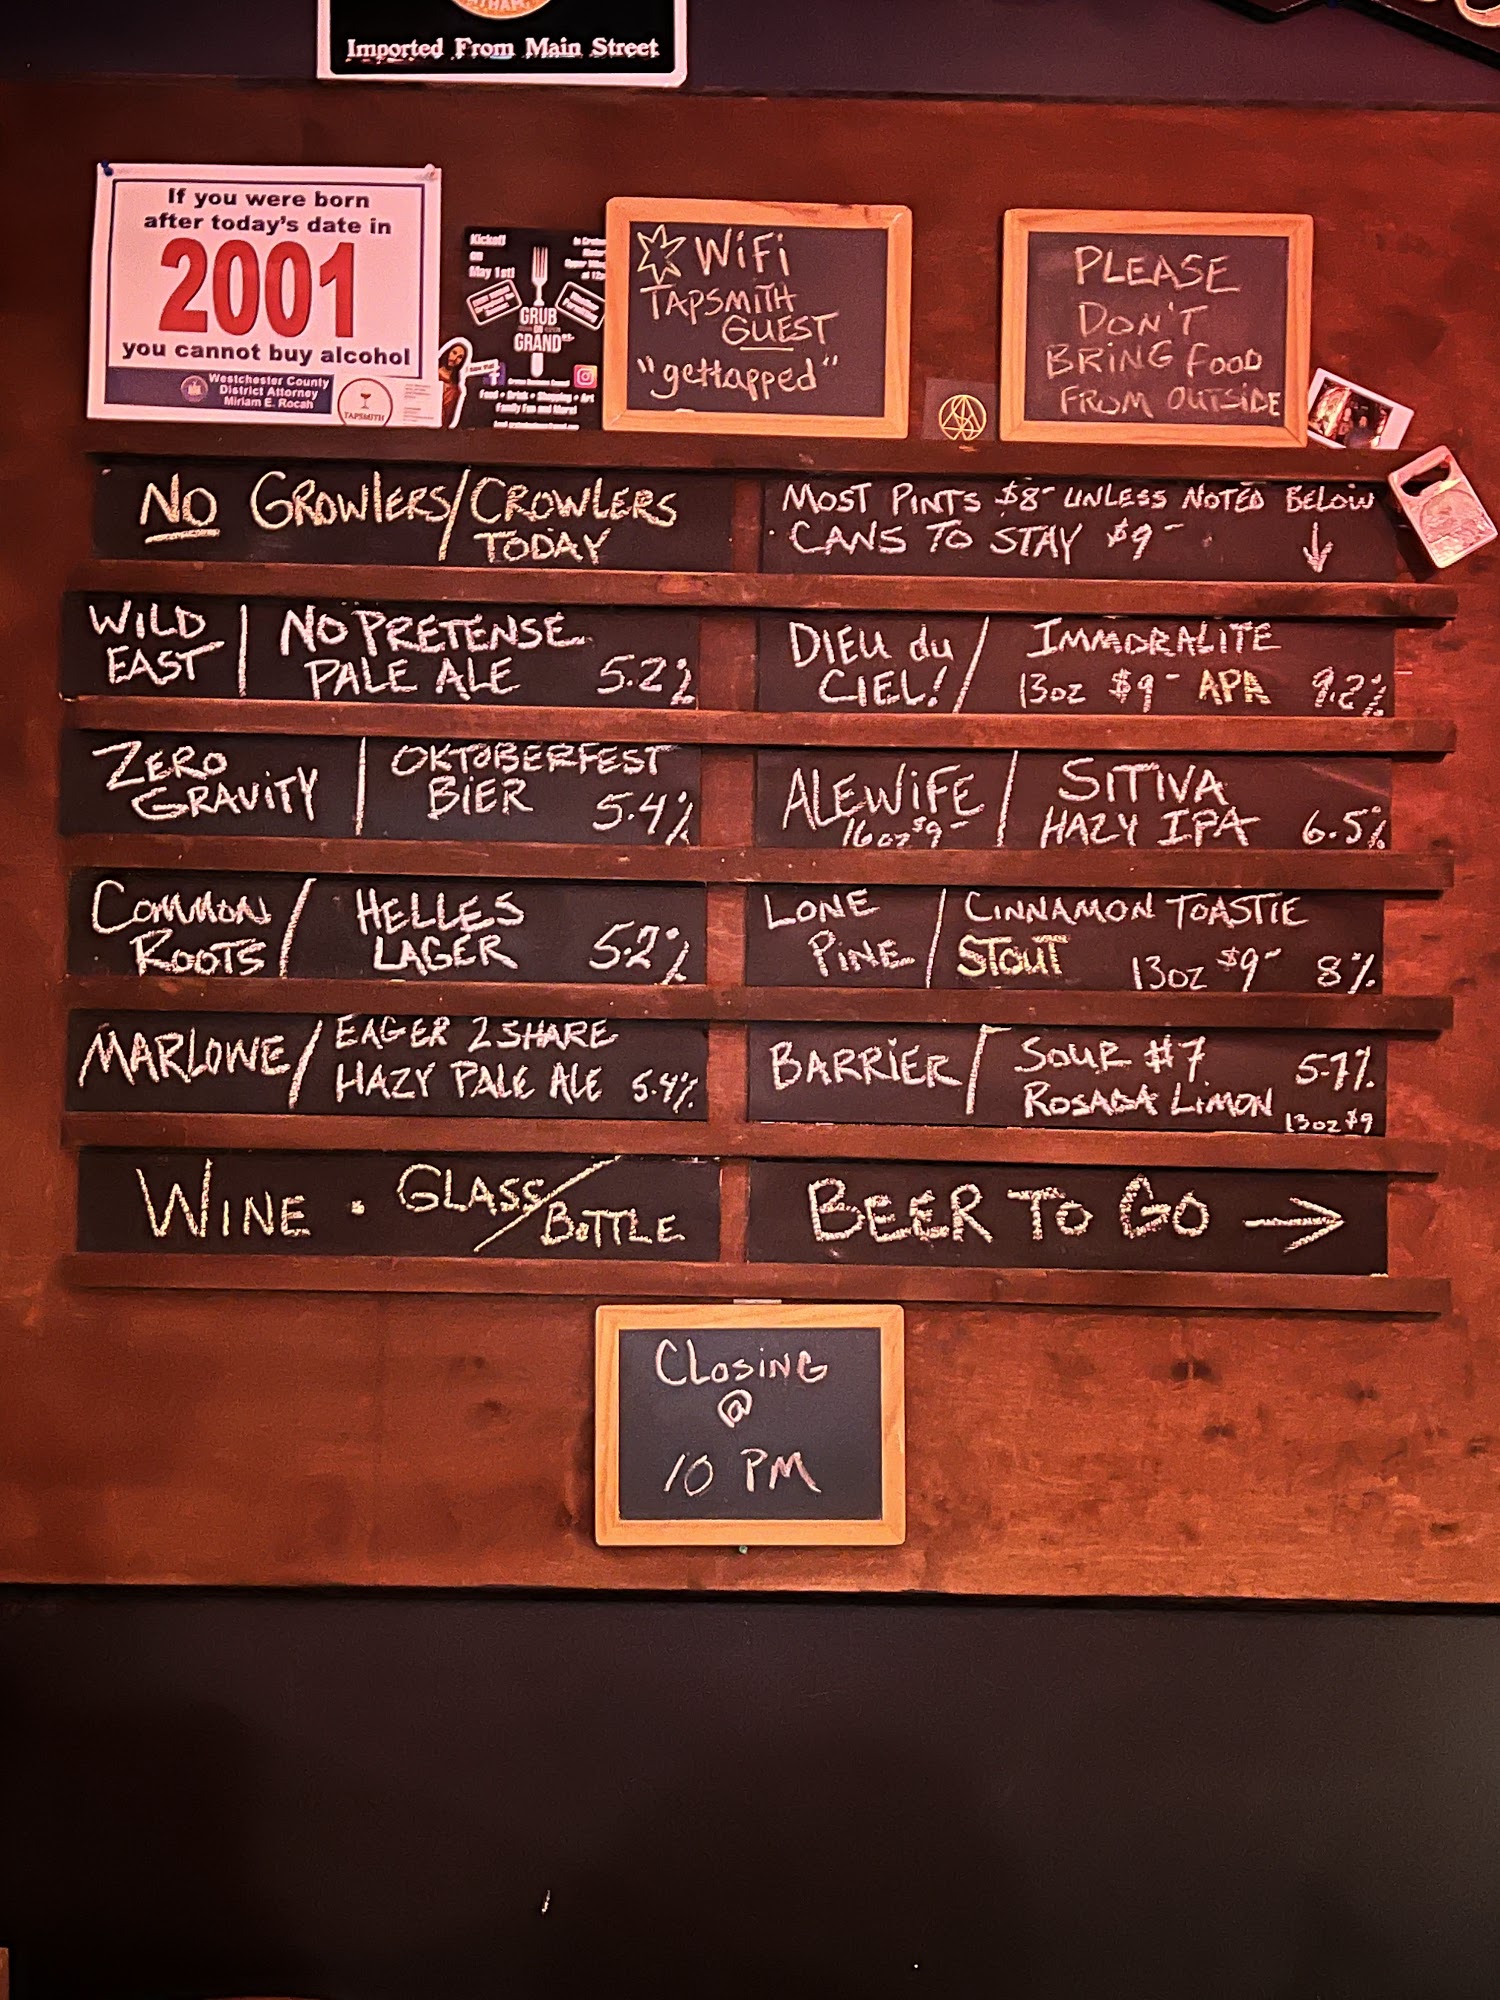 Imported From Main Street
If you were born
after today's date in
2001
you cannot buy alcohol
Westchester County
District Attorney
Miriam E. Rocah
TAPSMITH
Kickoff
on
May 1st!
GRUB
ON
GRAND
Food • Drink • Shopping • Art
Family Fun and More!
WiFi
TAPSMITH
GUEST
"gettapped"
PLEASE
DON'T
BRING FOOD
FROM OUTSIDE
NO GROWLERS/CROWLERS
TODAY
MOST PINTS $8- UNLESS NOTED BELOW
CANS TO STAY $9- ↓
WILD EAST | NO PRETENSE
PALE ALE 5.2%
DIEU du CIEL! / IMMORALITE
13oz $9- APA 9.2%
ZERO GRAVITY | OKTOBERFEST
BIER 5.4%
ALEWIFE / SITIVA
16oz $9- HAZY IPA 6.5%
COMMON ROOTS / HELLES
LAGER 5.2%
LONE PINE / CINNAMON TOASTIE
STOUT 13oz $9- 8%
MARLOWE / EAGER 2 SHARE
HAZY PALE ALE 5.4%
BARRIER / SOUR #7 5.7%
ROSADA LIMON 13oz $9
WINE • GLASS/BOTTLE
BEER TO GO →
CLOSING
@
10 PM